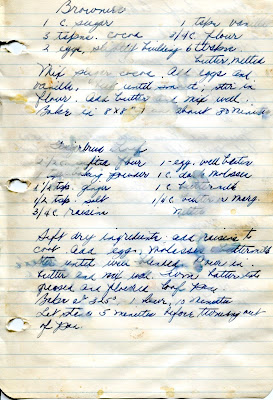 Brownies
1 C. sugar 1 tspn. vanilla
3 tspns. cocoa 3/4 C. flour
2 eggs, 6 tbspn
butter, melted
Mix sugar cocoa. Add eggs and
vanilla, until smooth, stir in
flour. Add butter and mix well.
Bake in 8"x8" about 30 minutes
sifted flour 1-egg, well beaten
baking powder 1 C. dark molasses
1/4 tsp. 1 C. buttermilk
1/2 tsp. salt 1/4 C. butter or marg.
3/4 C. raisins melted
Sift dry ingredients; add raisins to
coat. Add egg, molasses buttermilk
until well blended. Pour in
butter and mix well. Turn batter into
greased and floured loaf pan.
Bake at 325° 1 hour, minutes
Let stand 5 minutes before turning out
of pan.